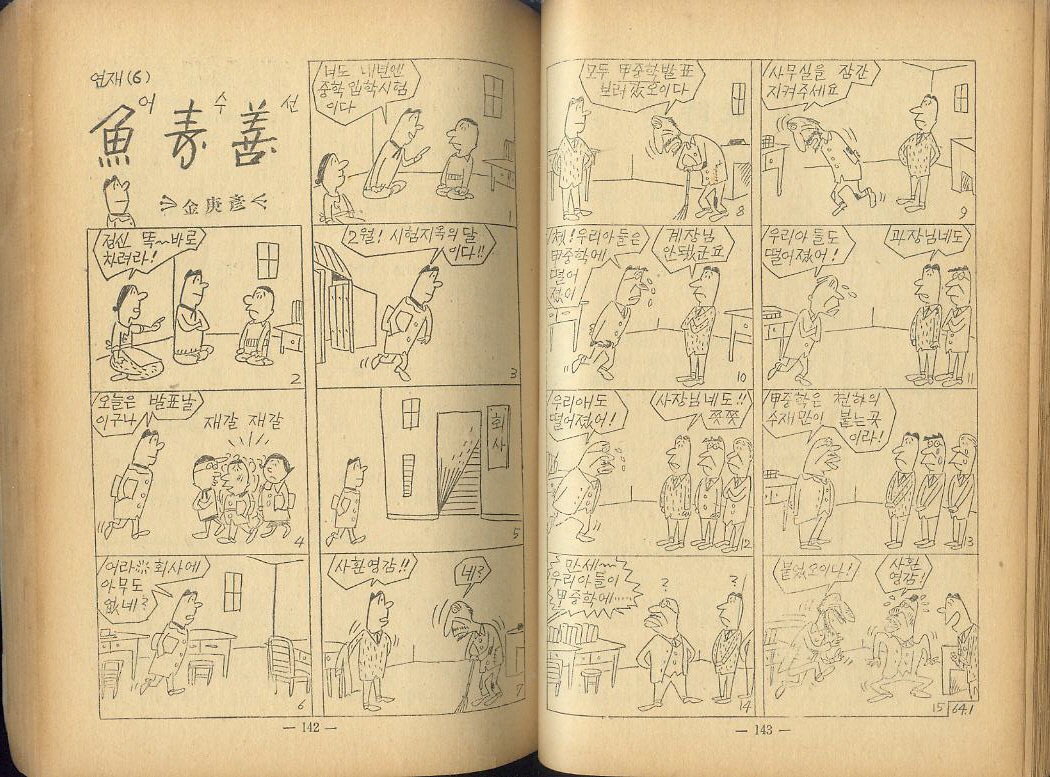 연재(6)
어 수 선
魚壽善
金庚彦
너도 내년엔
중학입학시험
이다
1
정신 똑~바로
차려라!
2
2월! 시험지옥의 달
이다!!
3
오늘은 발표날
이구나
재갈 재갈
4
회사
5
어라 회사에
아무도
없네?
6
사환영감!!
네?
7
— 142 —
모두 甲중학발표
보러 갔오이다
8
사무실을 잠간
지켜주세요
9
쳇! 우리아들은
甲중학에
떨어
졌어
계장님
안됐군요
10
우리아들도
떨어졌어!
과장님네도
11
우리애도
떨어졌어!
사장님네도!!
쯧쯧
12
甲중학은 천하의
수재만이 붙는곳
이라!
13
만세~
우리아들이
甲중학에……
?
?!
14
붙었오이다!
사환
영감!
15
64.1
— 143 —